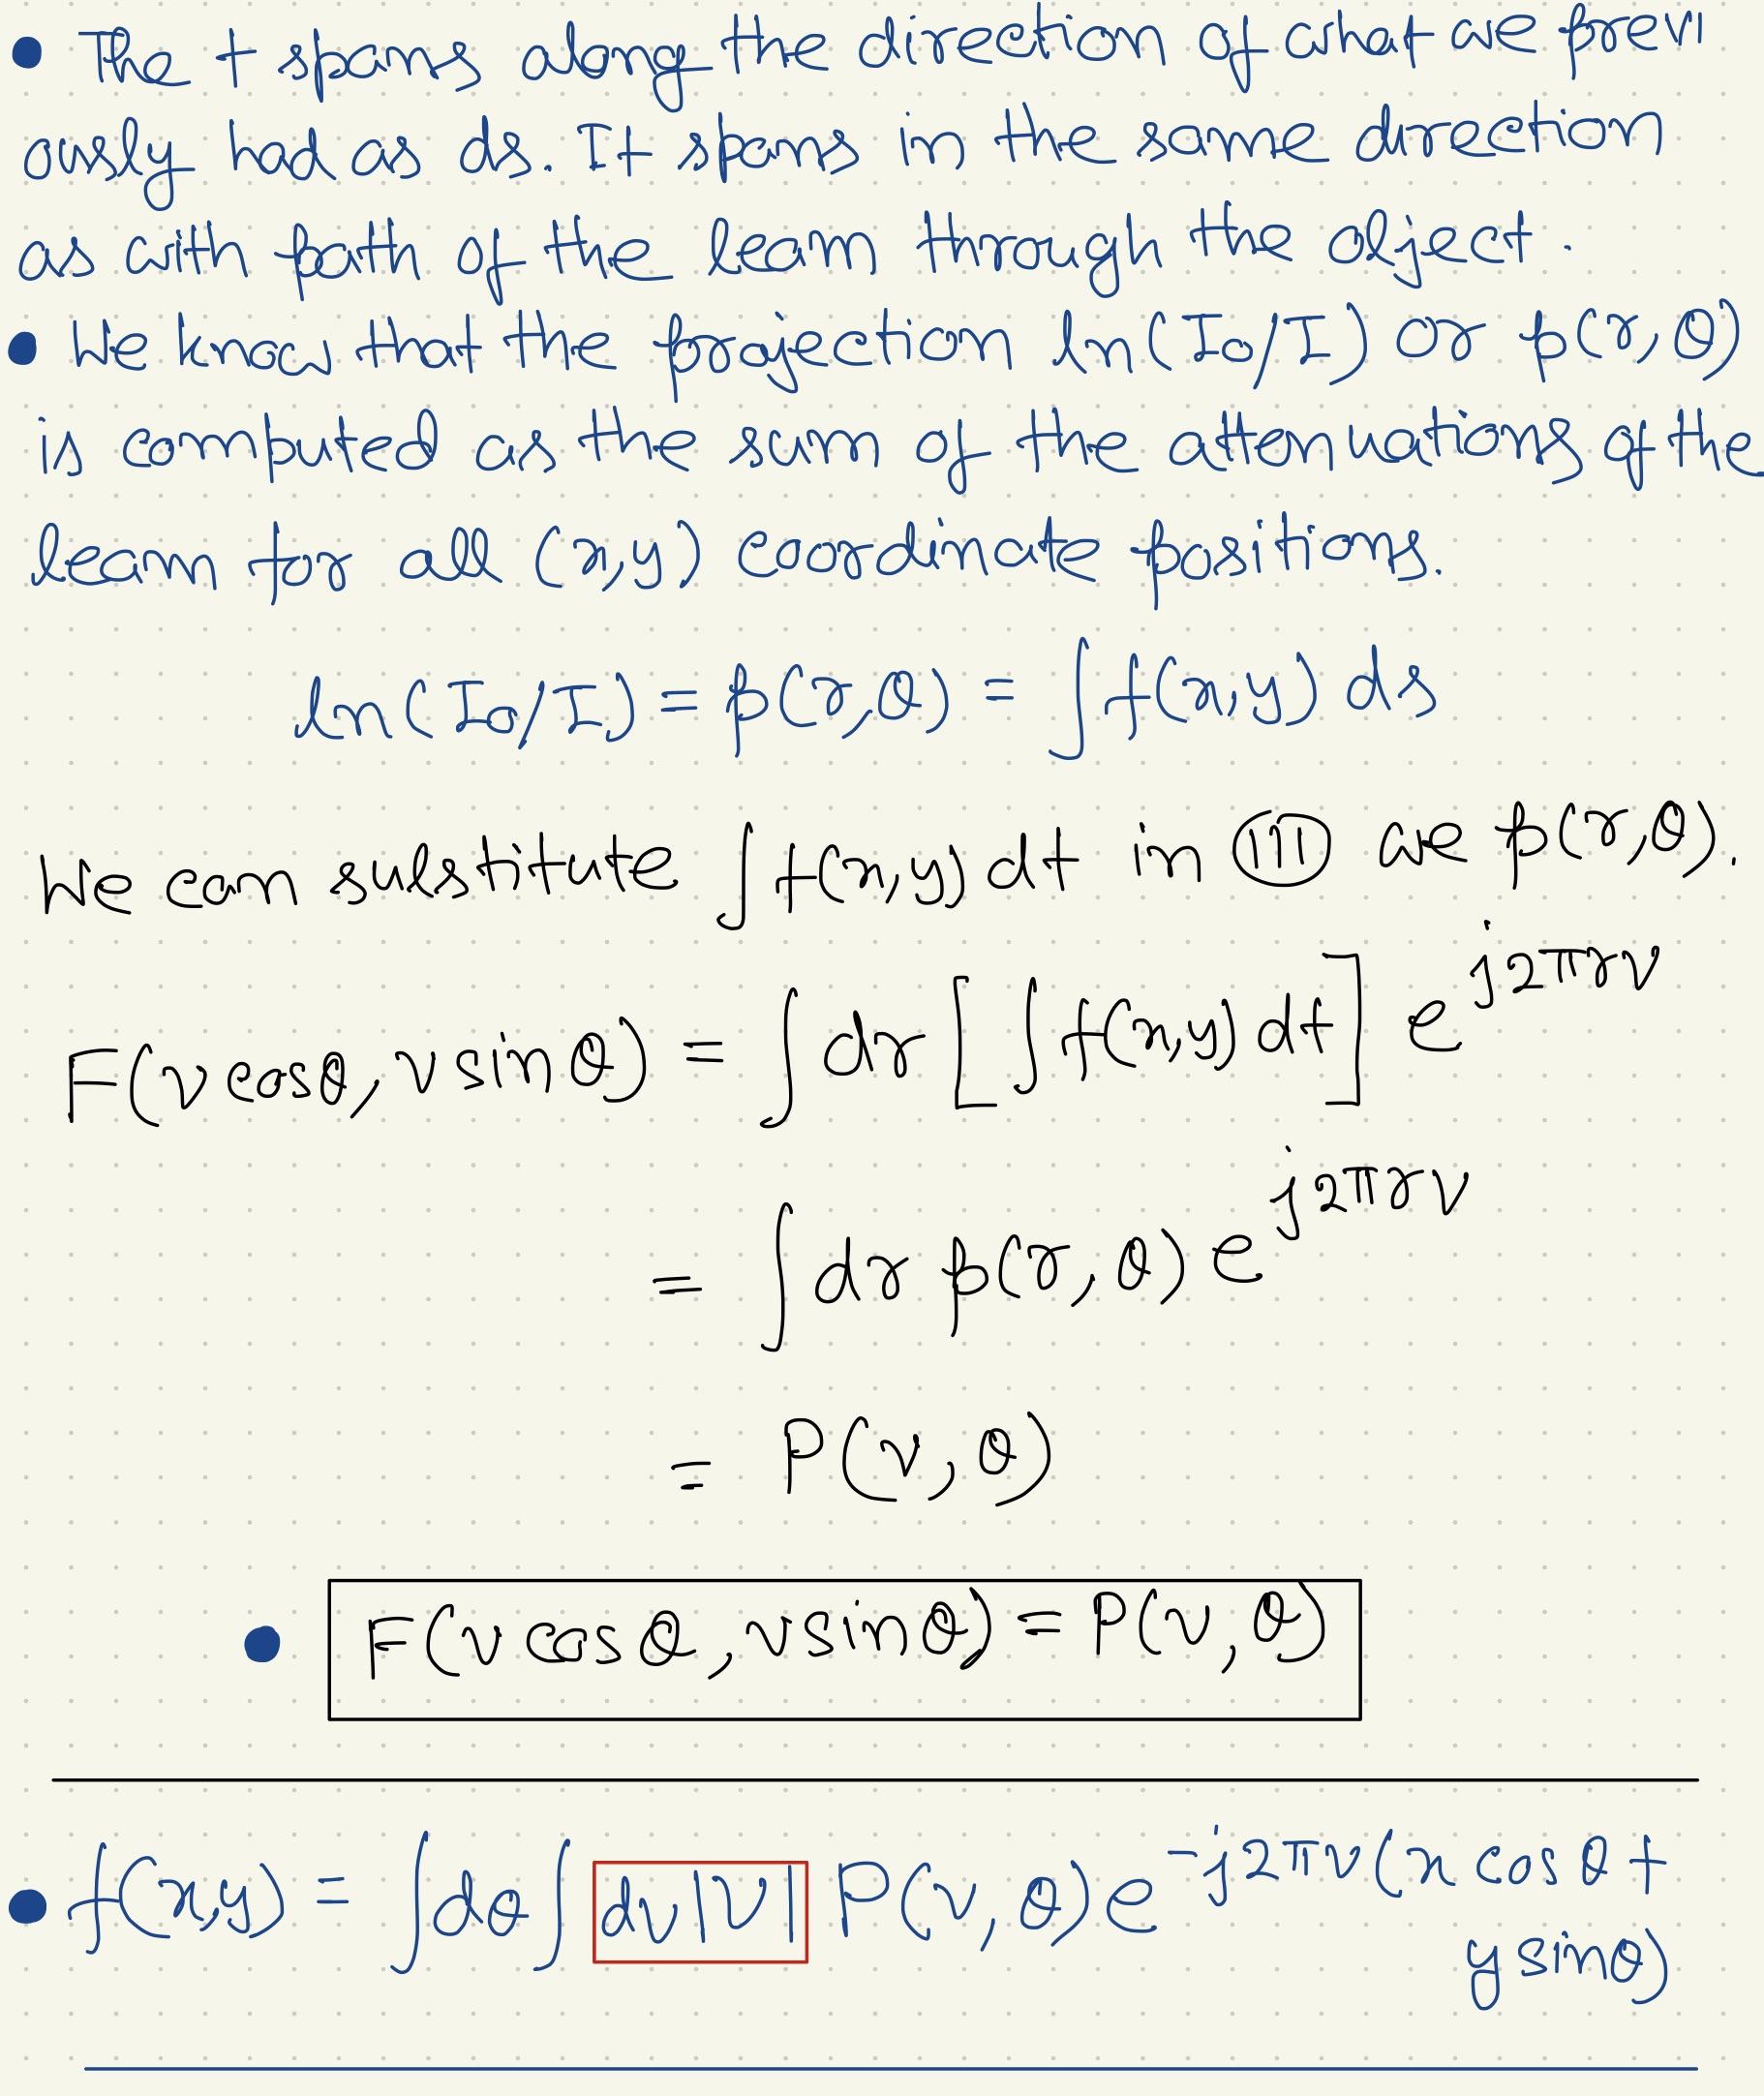 • The t spans along the direction of what we previ
ously had as ds. It spans in the same direction
as with path of the beam through the object.
• We know that the projection ln(I₀/I) or p(r,θ)
is computed as the sum of the attenuations of the
beam for all (x,y) coordinate positions.
ln(I₀/I) = p(r,θ) = ∫f(x,y) ds
We can substitute ∫f(x,y)dt in (III) as p(r,θ).
F(νcosθ, νsinθ) = ∫dr [∫f(x,y)dt] e^{j2πrν}
= ∫dr p(r,θ) e^{j2πrν}
= P(ν,θ)
• F(νcosθ, νsinθ) = P(ν,θ)
• f(x,y) = ∫dθ∫dν|ν| P(ν,θ)e^{-j2πν(x cosθ +
y sinθ)}